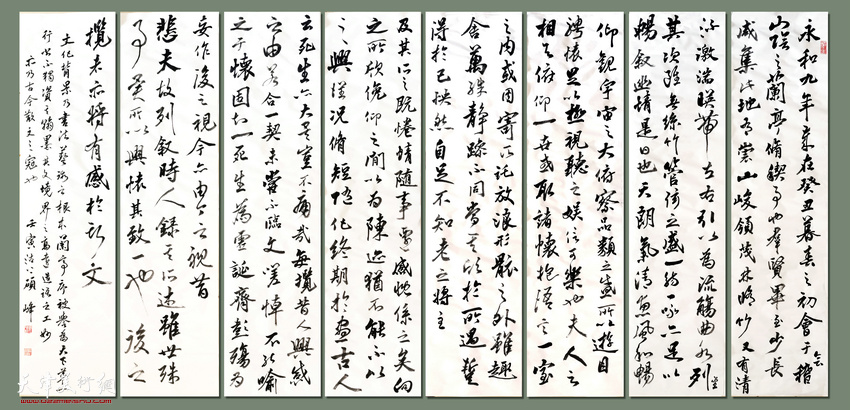 永和九年歲在癸丑暮春之初會于稽
會
山陰之蘭亭脩禊事也群賢畢至少長
咸集此地有崇山峻領茂林脩竹又有清
流激湍暎帶左右引以為流觴曲水列
坐
其次雖無絲竹管弦之盛一觴一詠亦足以
暢叙幽情是日也天朗氣清惠風和暢
仰觀宇宙之大俯察品類之盛所以遊目
騁懷足以極視聽之娛信可樂也夫人之
相與俯仰一世或取諸懷抱悟言一室
之内或因寄所託放浪形骸之外雖趣
舍萬殊靜躁不同當其欣於所遇蹔
得於己快然自足不知老之將至
及其所之既惓情隨事遷感慨係之矣向
之所欣俛仰之間以為陳迹猶不能不以
之興懷況脩短隨化終期於盡古人
云死生亦大矣豈不痛哉每攬昔人興感
之由若合一契未嘗不臨文嗟悼不能喻
之于懷固知一死生為虛誕齊彭殤為
妄作後之視今亦由今之視昔
悲夫故列叙時人錄其所述雖世殊
事異所以興懷其致一也後之
攬者亦將有感於斯文
文化背景乃書法藝術之根本蘭亭序被譽為天下第一
行書不獨資之翰墨其文境界之高造語之工妙
亦乃古今散文之冠也
壬寅碩峰
天津美術網